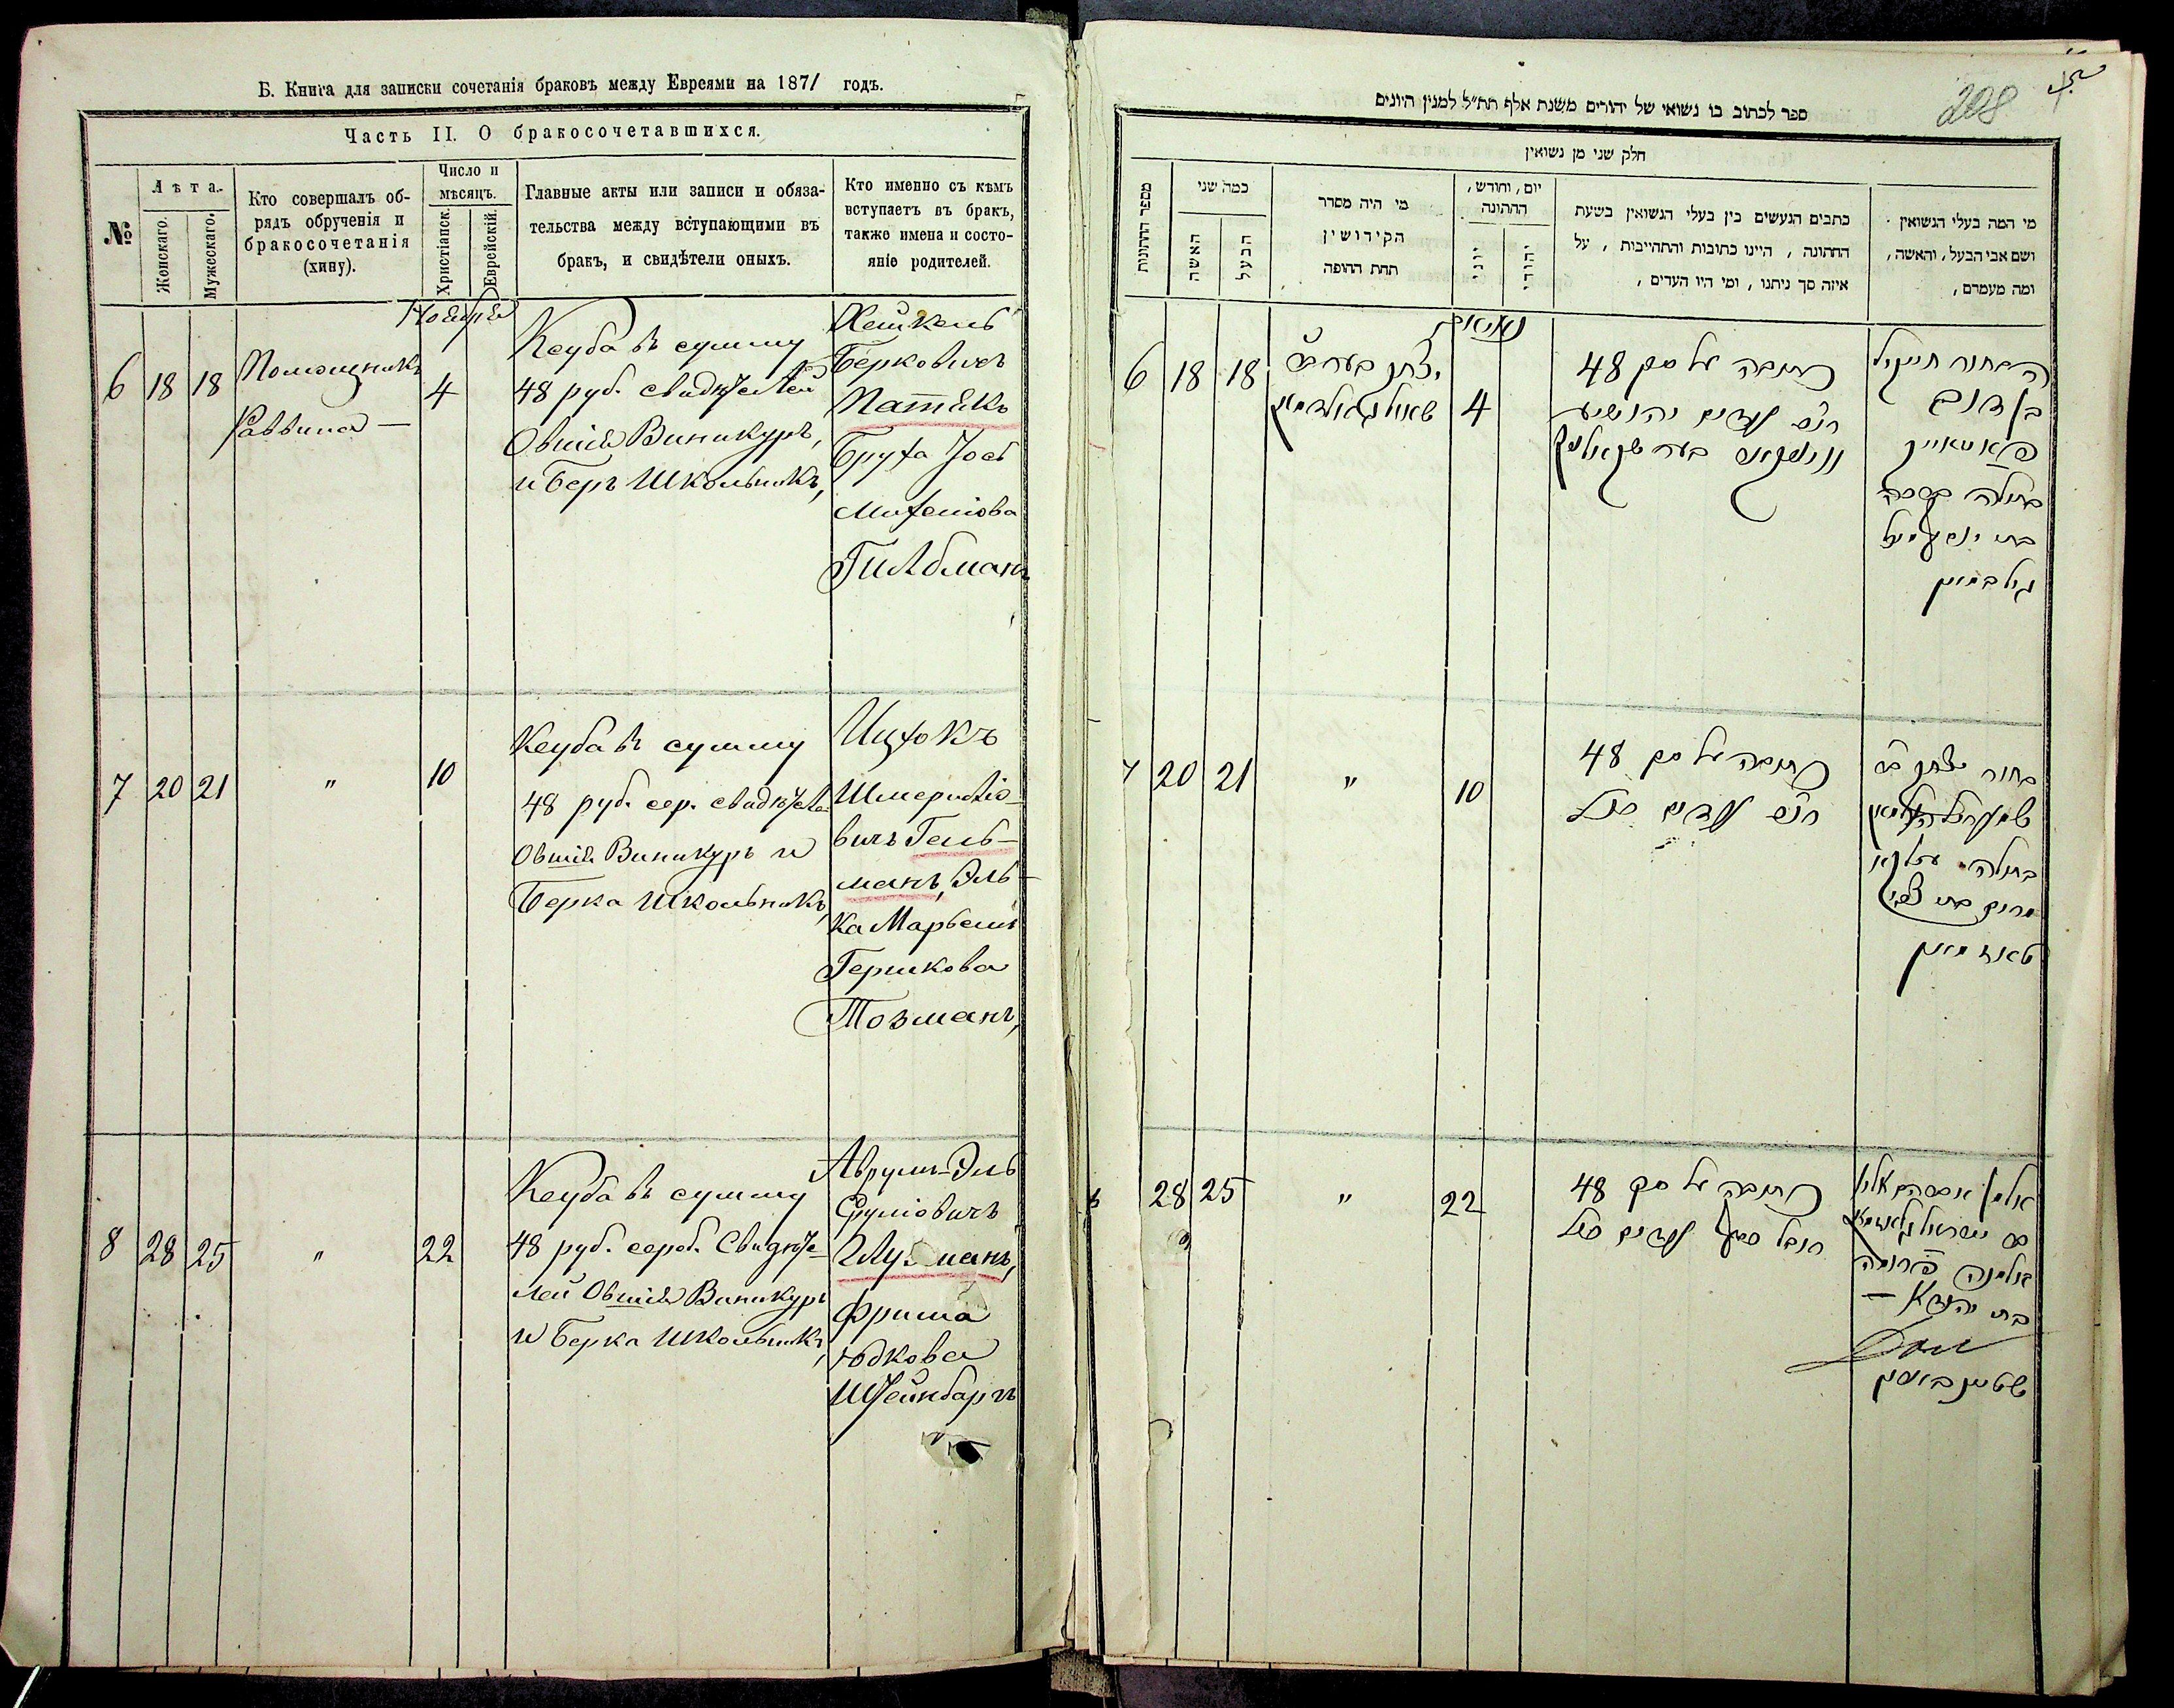 Б. Книга для записки сочетанія браковъ между Евреями на 1871 годъ.
Часть II. О бракосочетавшихся.
№
Лѣта.
Женскаго.
Мужескаго.
Кто совершалъ об-
рядъ обрученія и
бракосочетанія
(хину).
Число и
мѣсяцъ.
Христіанск.
Еврейскій.
Главные акты или записи и обяза-
тельства между вступающими въ
бракъ, и свидѣтели оныхъ.
Кто именно съ кѣмъ
вступаетъ въ бракъ,
также имена и состо-
яніе родителей.
Ноября
6 18 18
Помощникъ
Раввина —
4
Кеуба въ сумму
48 руб. свидѣтелей
Овшія Виникуръ,
и Беръ Школьникъ,
Хейкель
Берковичъ
Патякъ
Бруха Іось
Гилбманъ
7 20 21 " 10
Кеуба въ сумму
48 руб. сер. свидѣтел
Овшія Виникуръ и
Берка Школьникъ,
Ицхокъ
Шмеріо-
вичъ Гель-
манъ, Эль-
ка Марьемъ
Гершкова
Тозманъ,
8 28 25 " 22
Кеуба въ сумму
48 руб. сереб. Свидѣте-
лей Овшія Виникуръ
и Берка Школьникъ,
Аврумъ-Эль
Сруліовичъ
Глузманъ,
Фрима
Юдкова
Штейнбаргъ
208
ספר לכתוב בו נשואי של יהודים משנת אלף תת״ל למנין היונים
חלק שני מן נשואין
מספר החתונות
כמה שני
האשה
הבעל
מי היה מסדר
הקידושין
תחת החופה
יום, וחודש,
החתונה
יוני
יהודי
כתבים הנעשים בין בעלי הנשואין בשעת
החתונה, היינו כתובות והתחייבות, על
איזה סך ניתנו, ומי היו העדים,
מי המה בעלי הנשואין
ושם אבי הבעל, והאשה,
ומה מעמדם,
6 18 18
4
כתובה על סך 48
רו״כ עדים יהושיע
הבחור חייקיל
בתולה ברכה
גילבמאן
7 20 21 " 10
כתובה על סך 48
רו״כ עדים הנ״ל
בחור יצחק ב״ר
בתולה עלקא
מרים בת צבי
טאזמאן
28 25 " 22
כתובה על סך 48
אלמן אברהם אלי
אלמנה פרומה
בת יהודא —
שטיינבארג